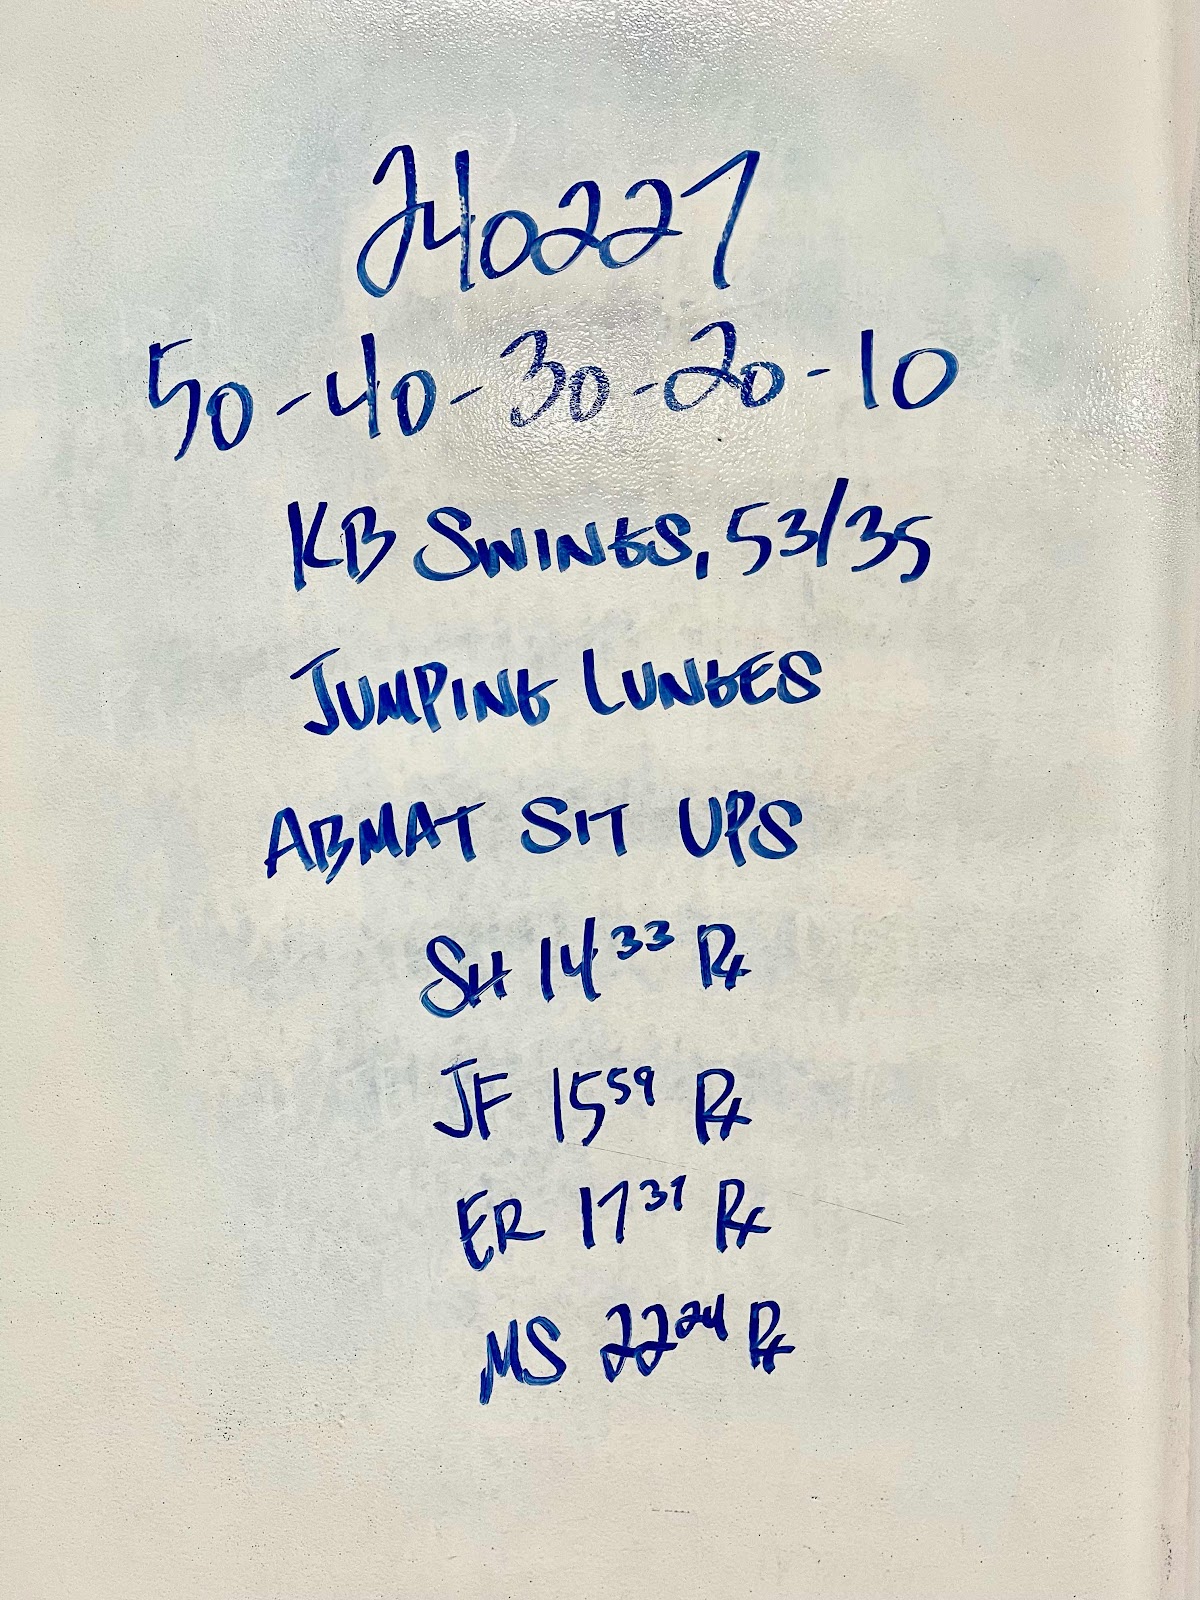 240227
50-40-30-20-10
KB SWINGS, 53/35
JUMPING LUNGES
ABMAT SIT UPS
SH 14³³ Rx
JF 15⁵⁹ Rx
ER 17³⁷ Rx
MS 22²⁴ Rx